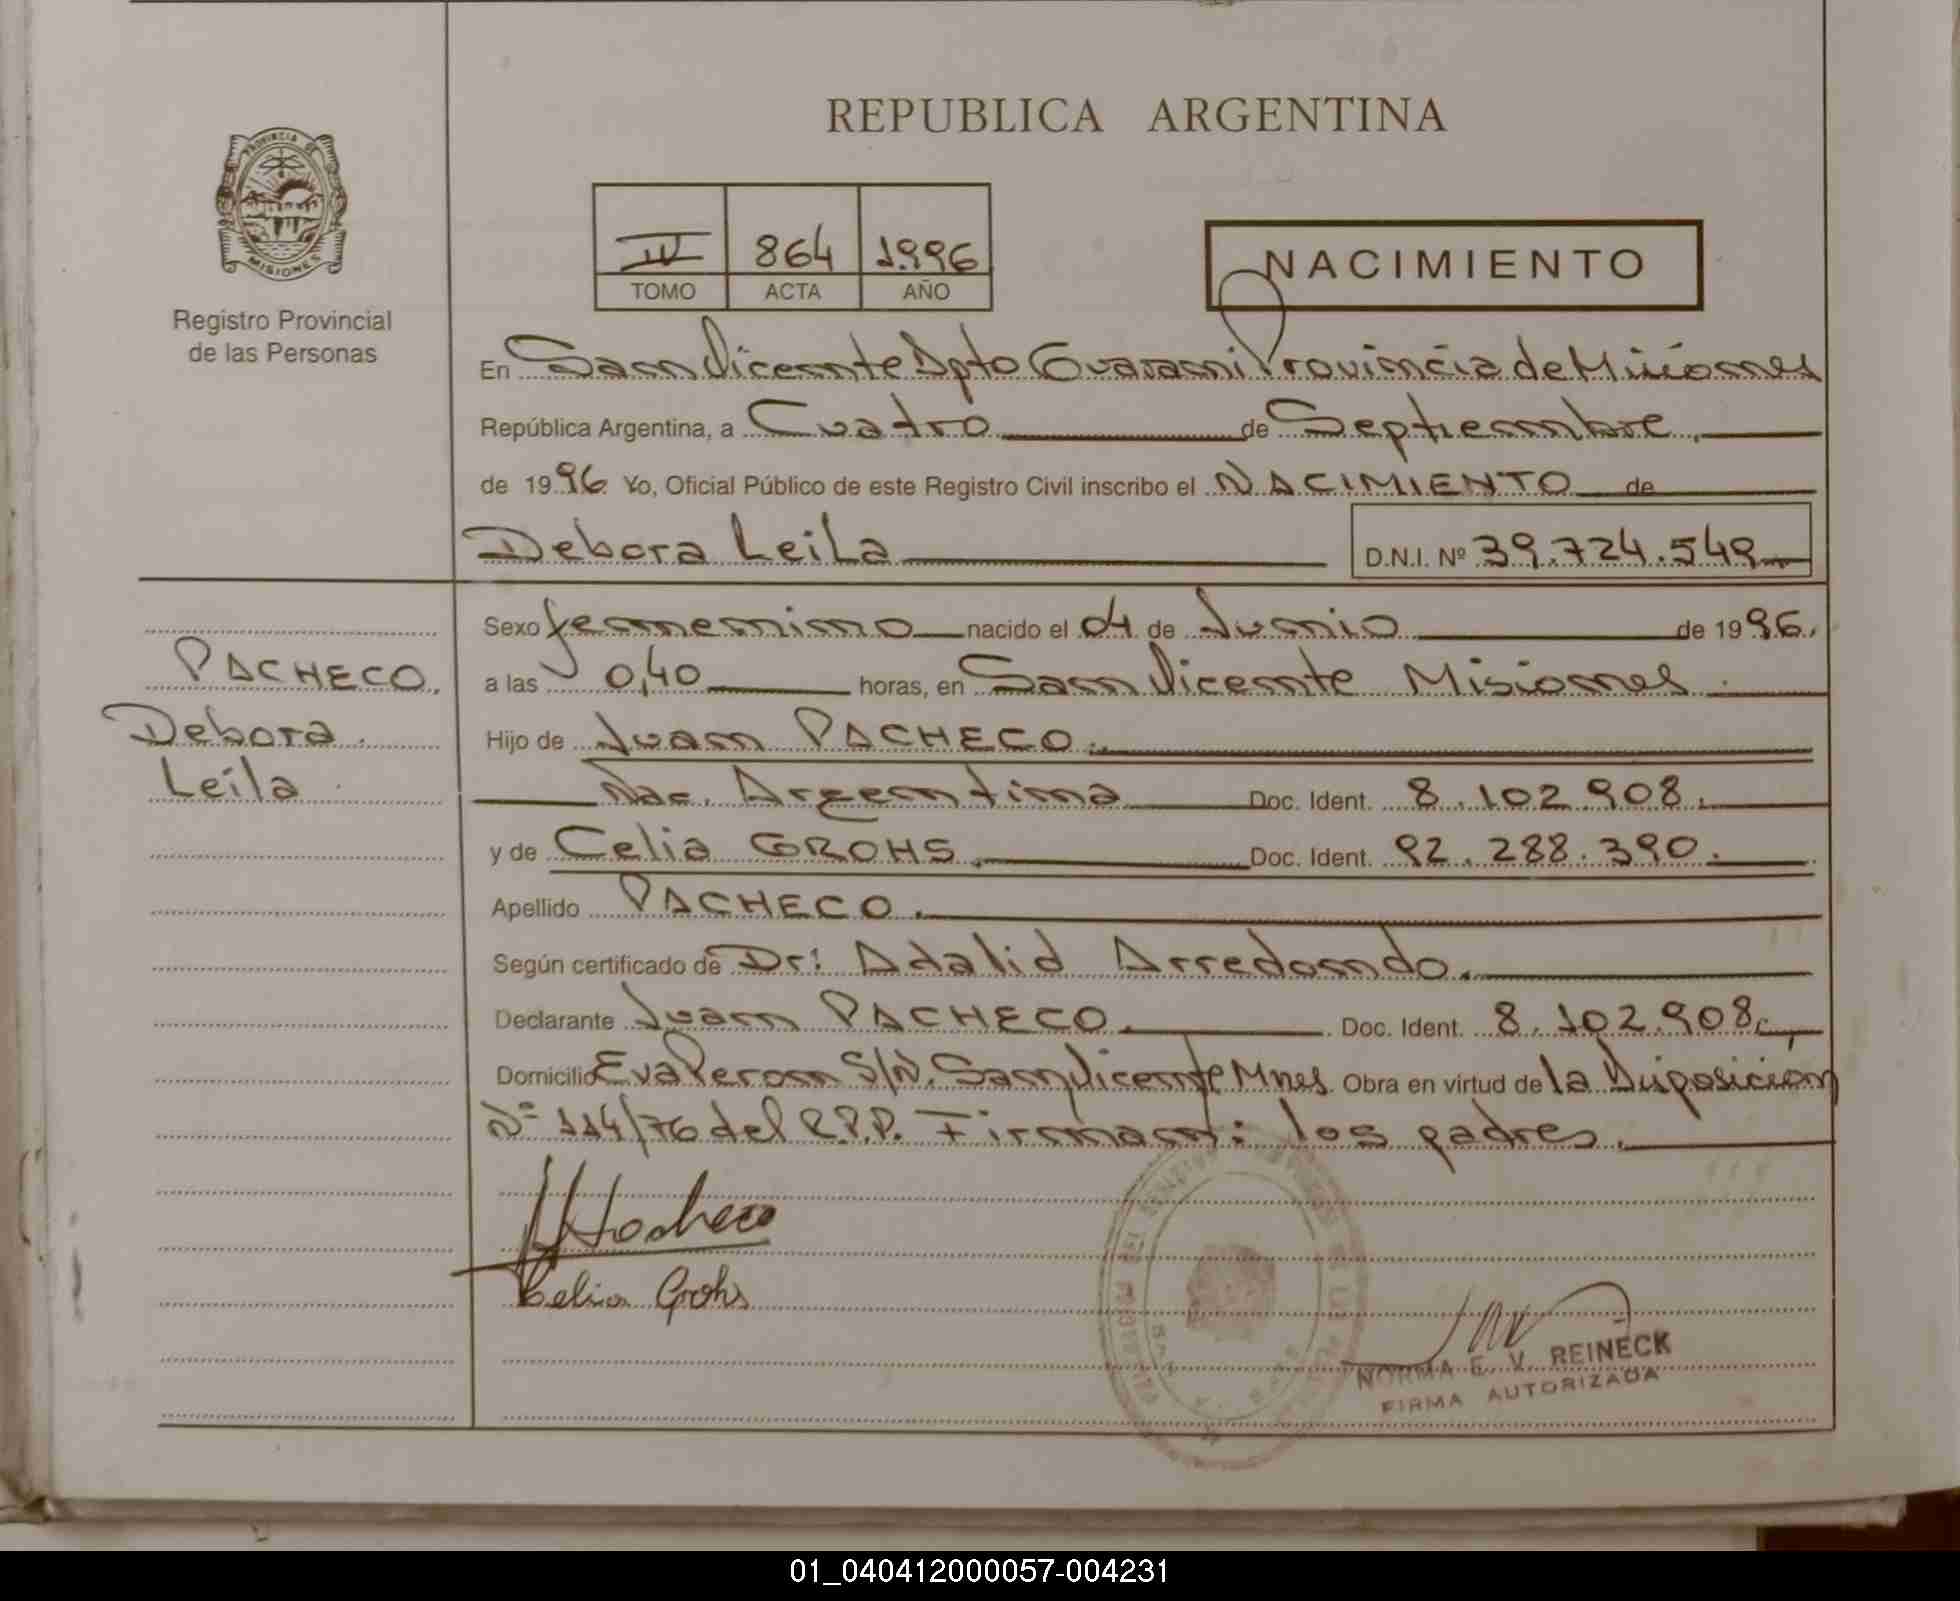 REPUBLICA ARGENTINA
PROVINCIA DE
MISIONES
Registro Provincial
de las Personas
IV 864 1996
TOMO ACTA AÑO
NACIMIENTO
En San Vicente Dpto Guarani Provincia de Misiones
República Argentina, a Cuatro de Septiembre.
de 1996. Yo, Oficial Público de este Registro Civil inscribo el NACIMIENTO de
Debora Leila D.N.I. Nº 39.724.549
PACHECO.
Debora.
Leila
Sexo femenino nacido el 04 de Junio de 1996.
a las 0,40 horas, en San Vicente Misiones.
Hijo de Juan PACHECO.
Nac. Argentina Doc. Ident. 8.102.908.
y de Celia GROHS. Doc. Ident. 92.288.390.
Apellido PACHECO.
Según certificado de Dr: Adalid Arredondo.
Declarante Juan PACHECO. Doc. Ident. 8.102.908
Domicilio Eva Peron S/N. San Vicente Mnes. Obra en virtud de la Disposición
Nº 114/76 del R.P.P. Firman: los padres.
Pacheco
Celia Grohs
NORMA E. V. REINECK
FIRMA AUTORIZADA
01_040412000057-004231